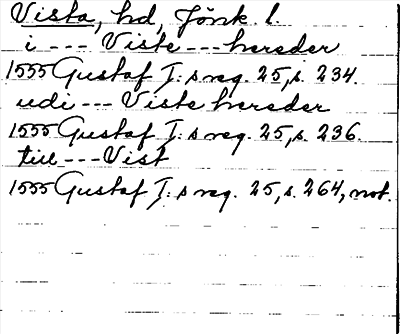 Vista, hd, Jönk. l.
i --- Viste --- hereder
1555 Gustaf I:s reg. 25, s. 234.
udi --- Viste hereder
1555 Gustaf I:s reg. 25, s. 236.
till --- Vist
1555 Gustaf I:s reg. 25, s. 264, not.